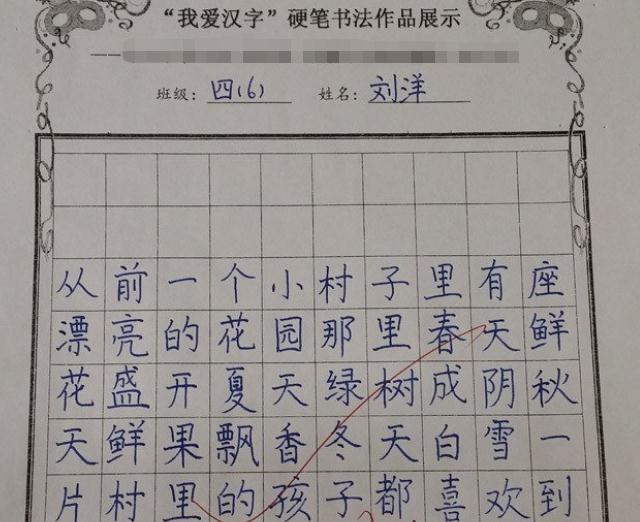 “我爱汉字”硬笔书法作品展示
班级：四(6) 姓名：刘洋
从前一个小村子里有座
漂亮的花园那里春天鲜
花盛开夏天绿树成阴秋
天鲜果飘香冬天白雪一
片村里的孩子都喜欢到